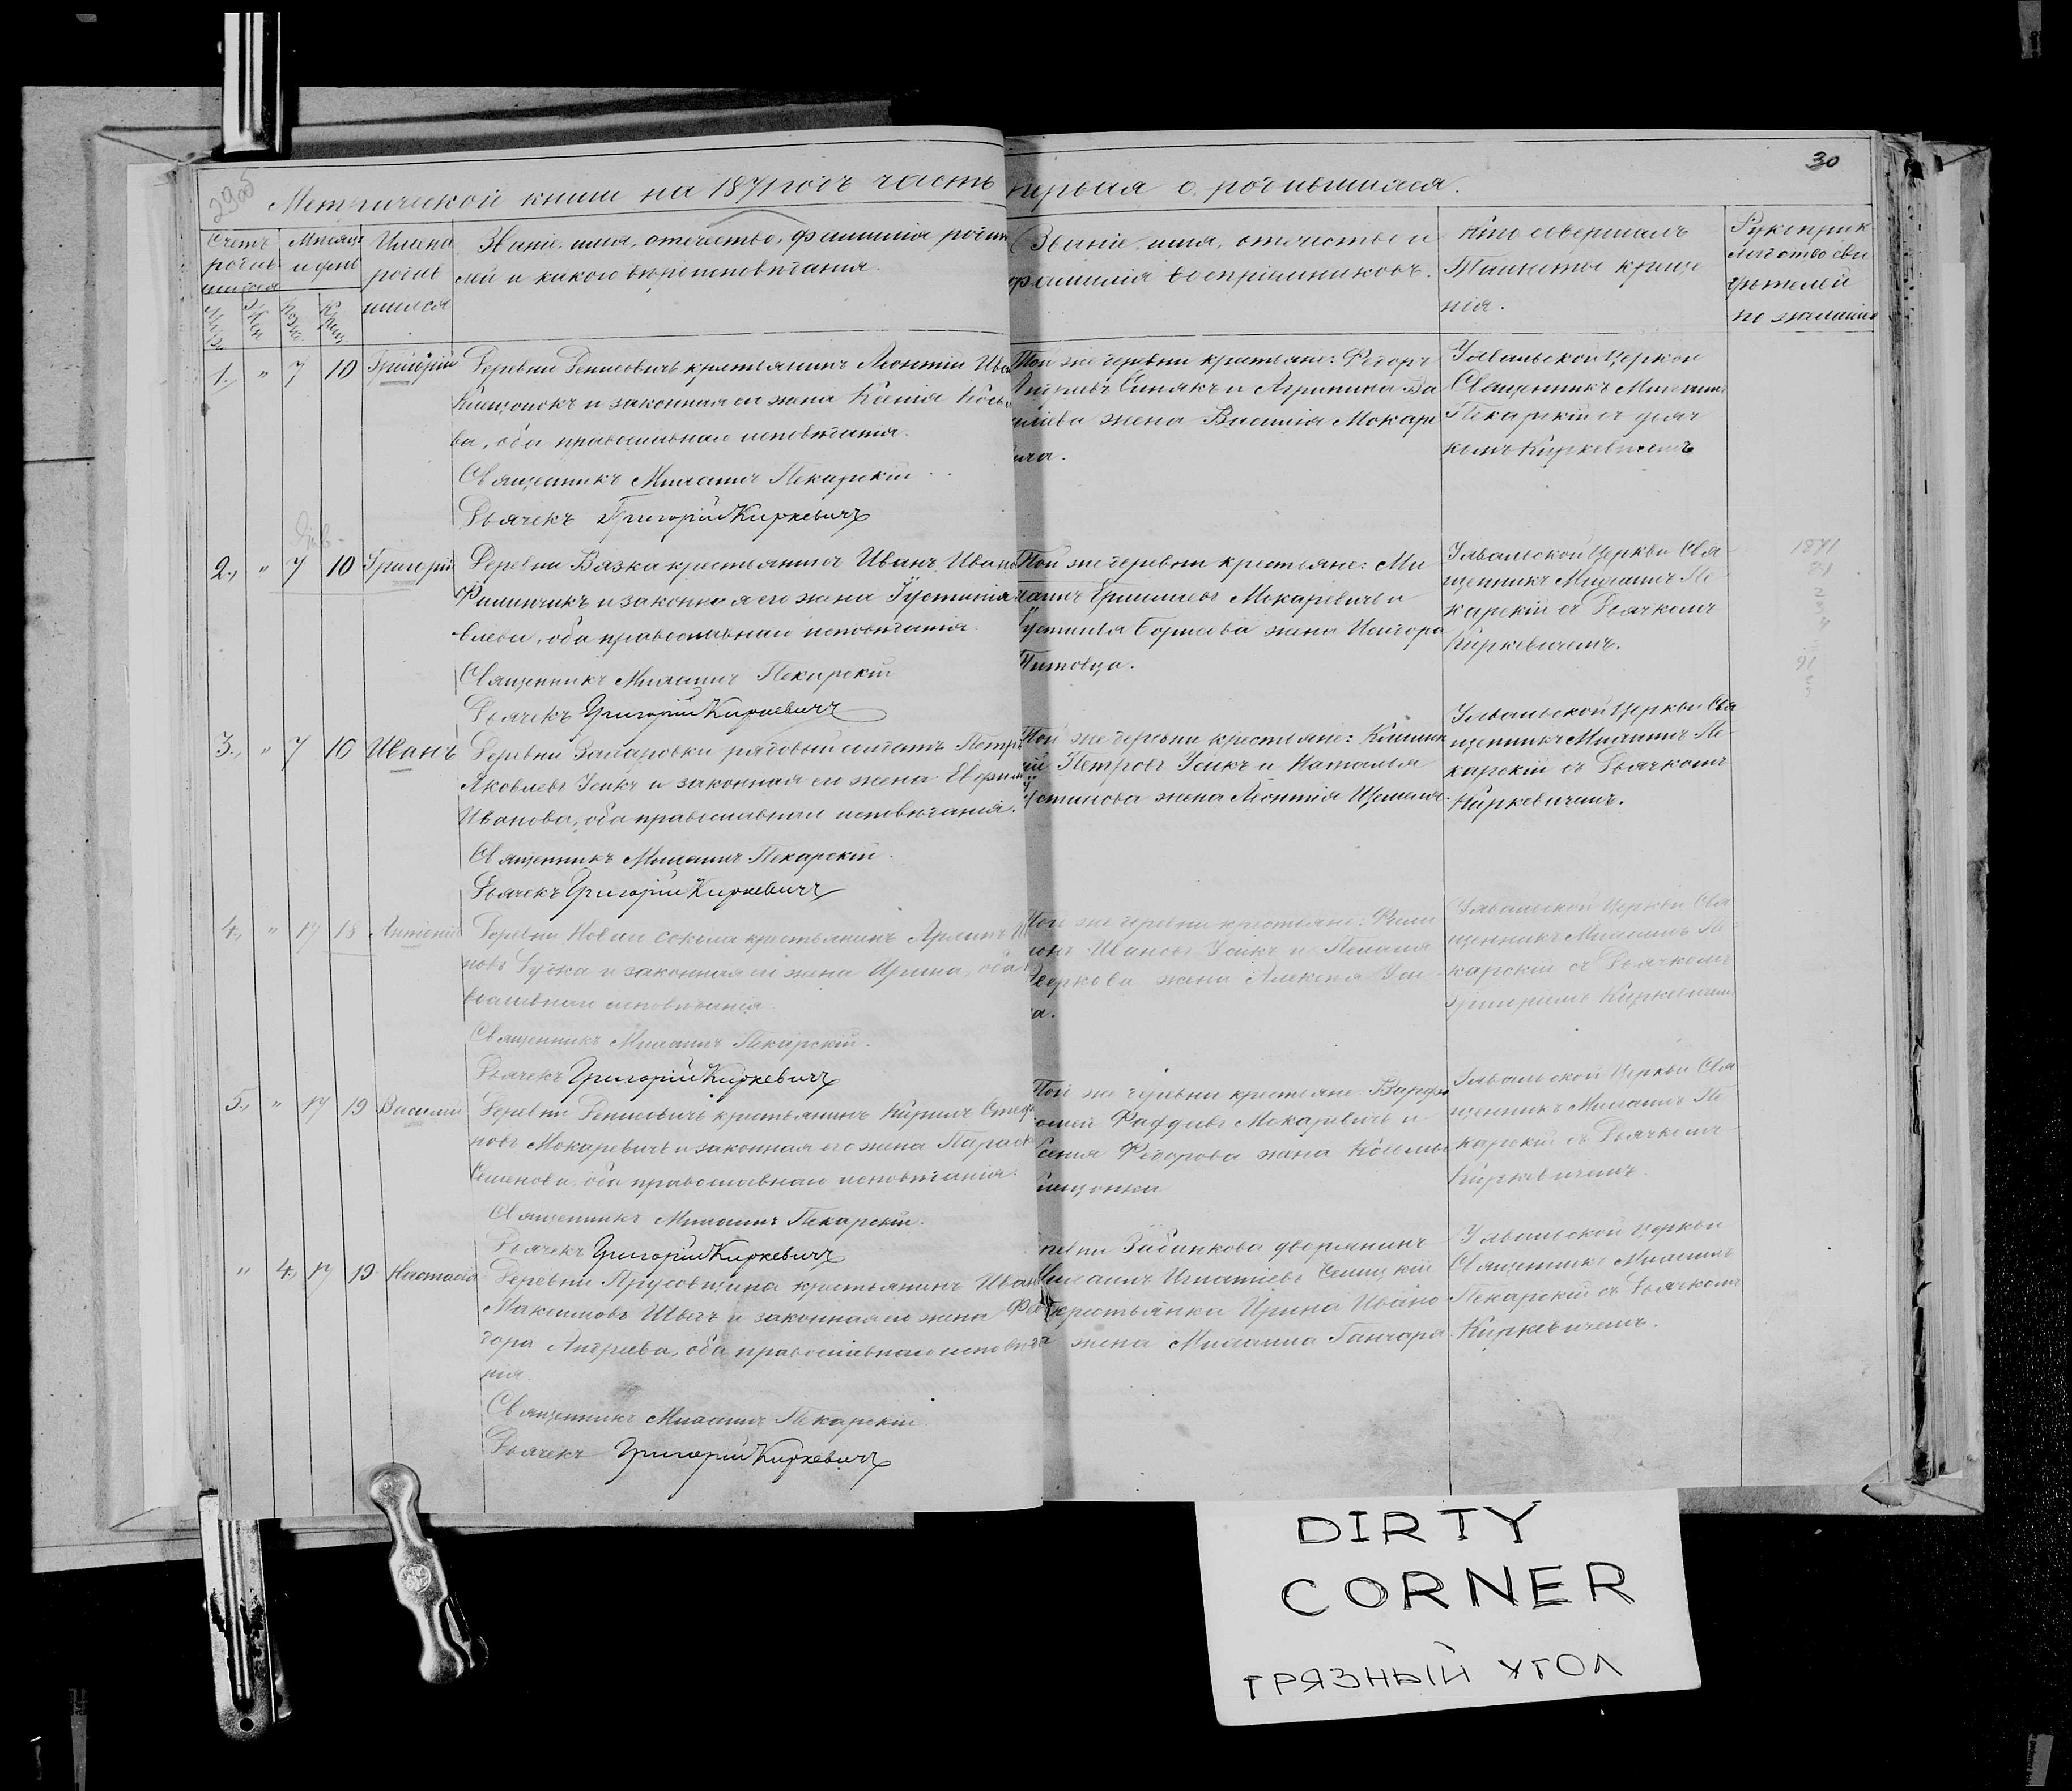 29об
30
Метрической книги на 1871 годъ часть первая о родившихся.
Счетъ родив шихся
Мѣсяцъ и день
Имена родив шихся
Званіе, имя, отечество, фамилія родите лей и какого вѣроисповѣданія.
Званіе, имя, отчество и фамилія воспріемниковъ.
Кто совершалъ Таинство креще нія.
Рукоприк ладство сви дѣтелей по желанію
1. " 7 10 Григорій
Деревни Денисовичъ крестьянинъ Леонтій Ива
и законная его жена Ксенія
ва, оба православнаго исповѣданія.
Священникъ Михаилъ Пекарскій
Дьячекъ Григорій Киркевичъ
Той же деревни крестьяне: Ѳедоръ
Андреевъ и Агрипина Ва
сильева жена Василія Мокаре
вича.
Ульвальской Церкви
Священникъ Михаилъ
Пекарскій съ дьяч
комъ Киркевичемъ
2. " 7 10 Григорій
Деревни Вязка крестьянинъ Иванъ Ивановъ
Филинчикъ и законная его жена Іустинія
влева, оба православнаго исповѣданія.
Священникъ Михаилъ Пекарскій
Дьячекъ Григорій Киркевичъ
Той же деревни крестьяне: Ми
хаилъ Мокаревичъ и
Іустинія жена
Титовца.
Ульвальской Церкви Свя
щенникъ Михаилъ Пе
карскій съ Дьячкомъ
Киркевичемъ.
1871
3. " 7 10 Иванъ
Деревни рядовый солдатъ Петръ
Яковлевъ Усикъ и законная его жена
Иванова, оба православнаго исповѣданія.
Священникъ Михаилъ Пекарскій
Дьячекъ Григорій Киркевичъ
Той же деревни крестьяне:
Петровъ Усикъ и Наталья
Устинова жена Леонтія
Ульвальской Церкви Свя
щенникъ Михаилъ Пе
карскій съ Дьячкомъ
Киркевичемъ.
4. " 17 18 Антоній
Деревни крестьянинъ
новъ и законная его жена Ирина, оба
вославнаго исповѣданія
Священникъ Михаилъ Пекарскій.
Дьячекъ Григорій Киркевичъ
Той же деревни крестьяне: Фили
Ивановъ Усикъ и Пелагія
жена Алексея Уси
ка.
Ульвальской Церкви Свя
щенникъ Михаилъ Пе
карскій съ Дьячкомъ
Григоріемъ Киркевичемъ
5. " 17 19 Василій
Деревни Денисовичъ крестьянинъ Кириллъ Стефа
новъ Мокаревичъ и законная его жена Параск
Семенова, оба православнаго исповѣданія.
Священникъ Михаилъ Пекарскій.
Дьячекъ Григорій Киркевичъ
Той же деревни крестьяне: Варфо
ломей Фаддѣевъ Мокаревичъ и
Ксенія Ѳедорова жена Космы
Ульвальской Церкви Свя
щенникъ Михаилъ Пе
карскій съ Дьячкомъ
Киркевичемъ
" 4. 17 19 Настасія
Деревни Прусовщина крестьянинъ Иван
Максимовъ Швецъ и законная его жена Фео
дора Андреева, оба православнаго исповѣда
нія.
Священникъ Михаилъ Пекарскій
Дьячекъ Григорій Киркевичъ
дворянинъ
Михаилъ Игнатіевъ
крестьянка Ирина Ивано
ва жена Михаила Ганчара.
Ульвальской Церкви
Священникъ Михаилъ
Пекарскій съ Дьячкомъ
Киркевичемъ.
DIRTY
CORNER
ГРЯЗНЫЙ УГОЛ